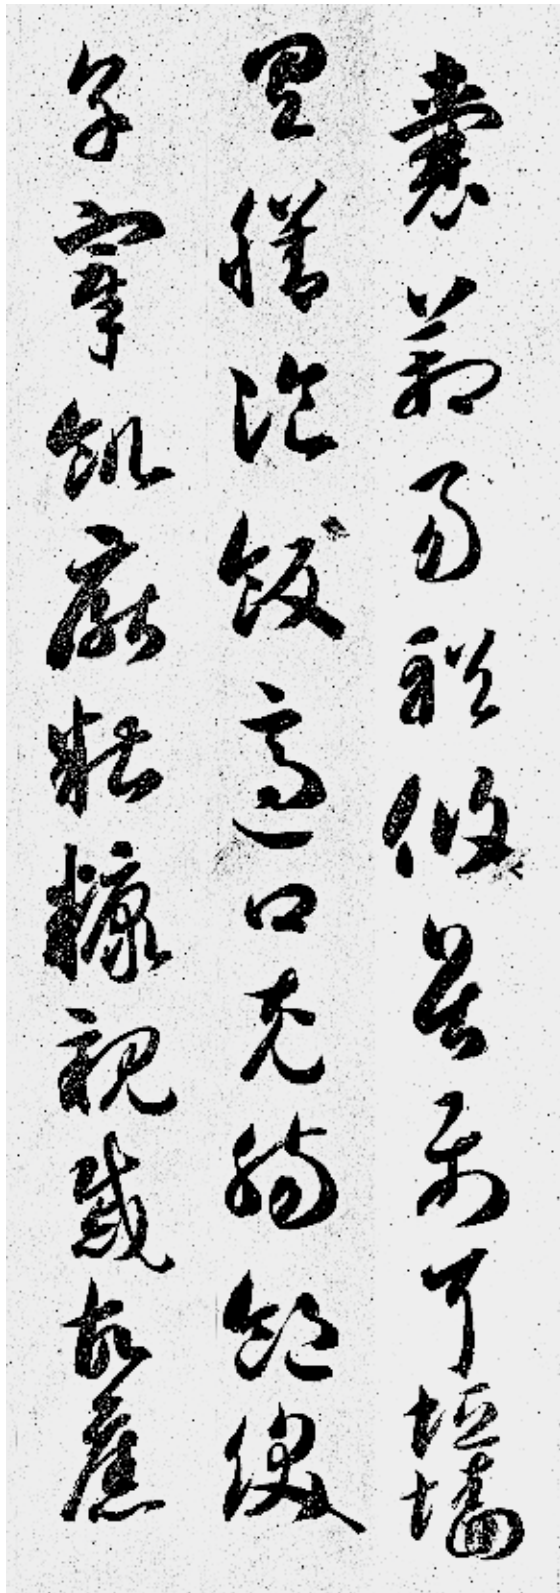 囊箱易輶攸畏屬耳垣牆
具膳飡飯適口充腸飽飫
烹宰飢厭糟糠親戚故舊